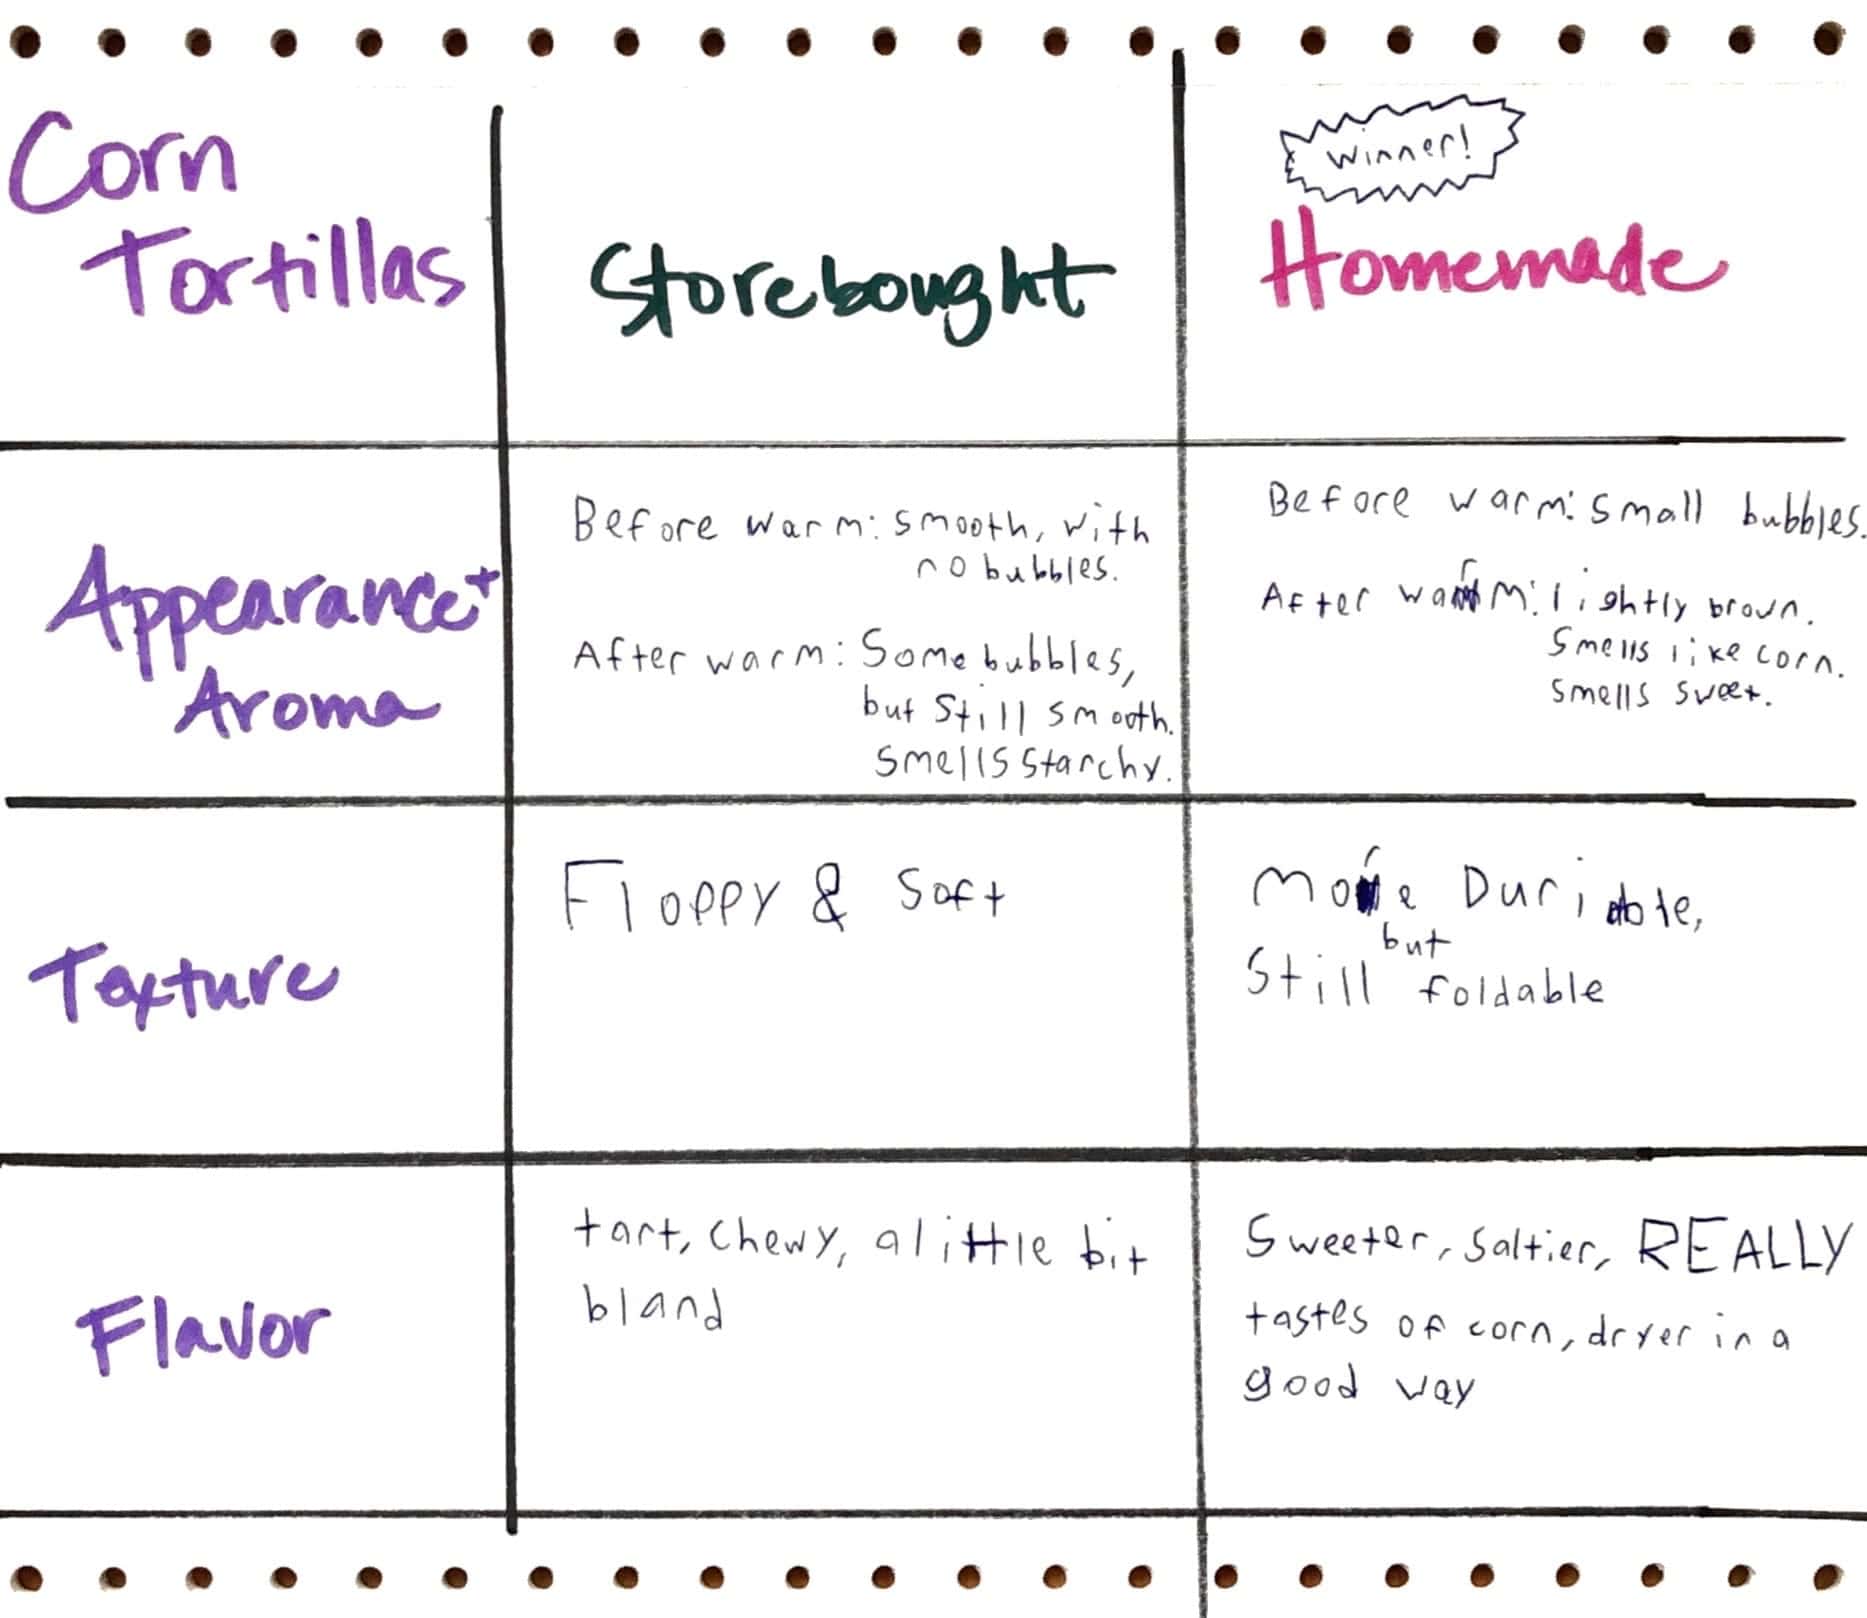 Corn
Tortillas
Storebought
Winner!
Homemade
Appearance +
Aroma
Before warm: smooth, with
no bubbles.
After warm: Some bubbles,
but still smooth.
smells starchy.
Before warm: small bubbles.
After warm: lightly brown.
Smells like corn.
smells sweet.
Texture
Floppy & Soft
More Duridble,
Still but foldable
Flavor
tart, chewy, a little bit
bland
Sweeter, saltier, REALLY
tastes of corn, dryer in a
good way